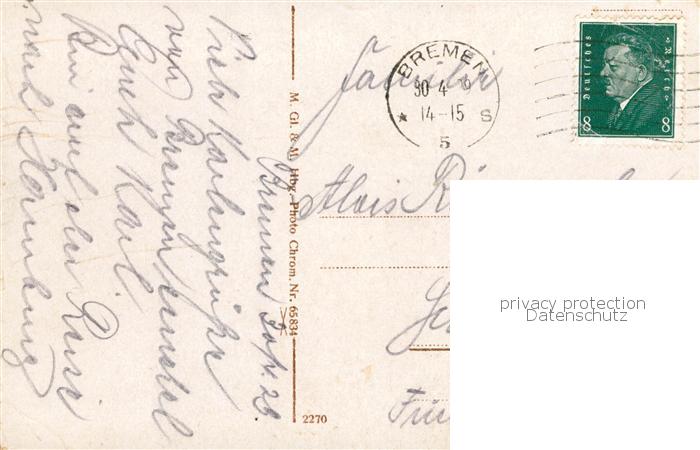 Bremen 30/4. 28
Viele Kartengrüße
von Bremen sendet
Euch Karl
Bin auf der Reise
nach Hamburg
M. Gl. & M. Hbg. Photo Chrom. Nr. 65834
2270
Familie
Alois
BREMEN
30 4
14-15
* S
5
Deutsches Reich
8 8
privacy protection
Datenschutz